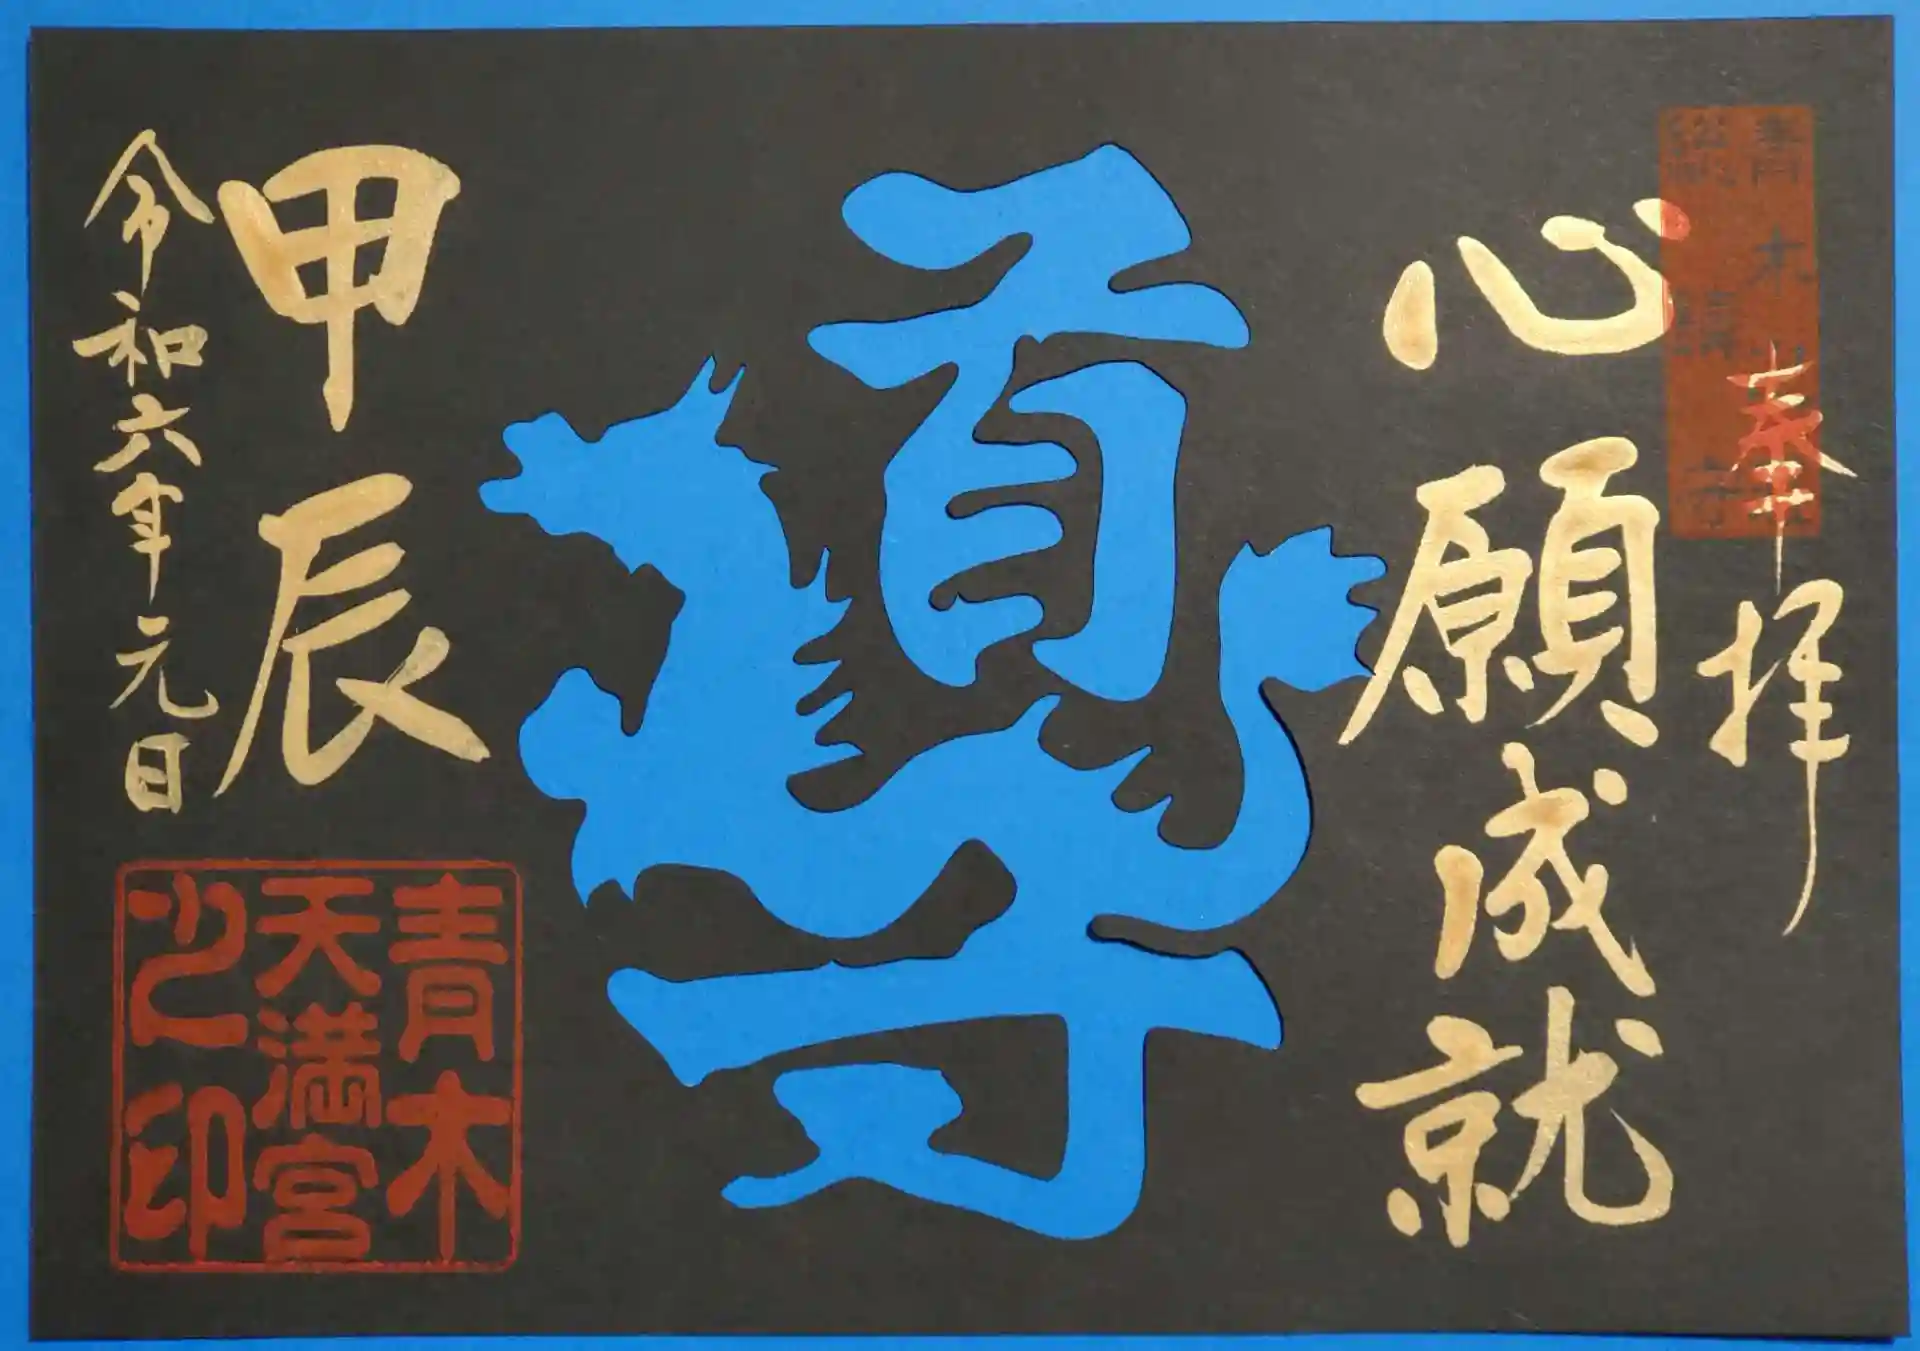 奉拝
総鎮守
心願成就
導
甲辰
令和六年元日
青木
天満宮
之印